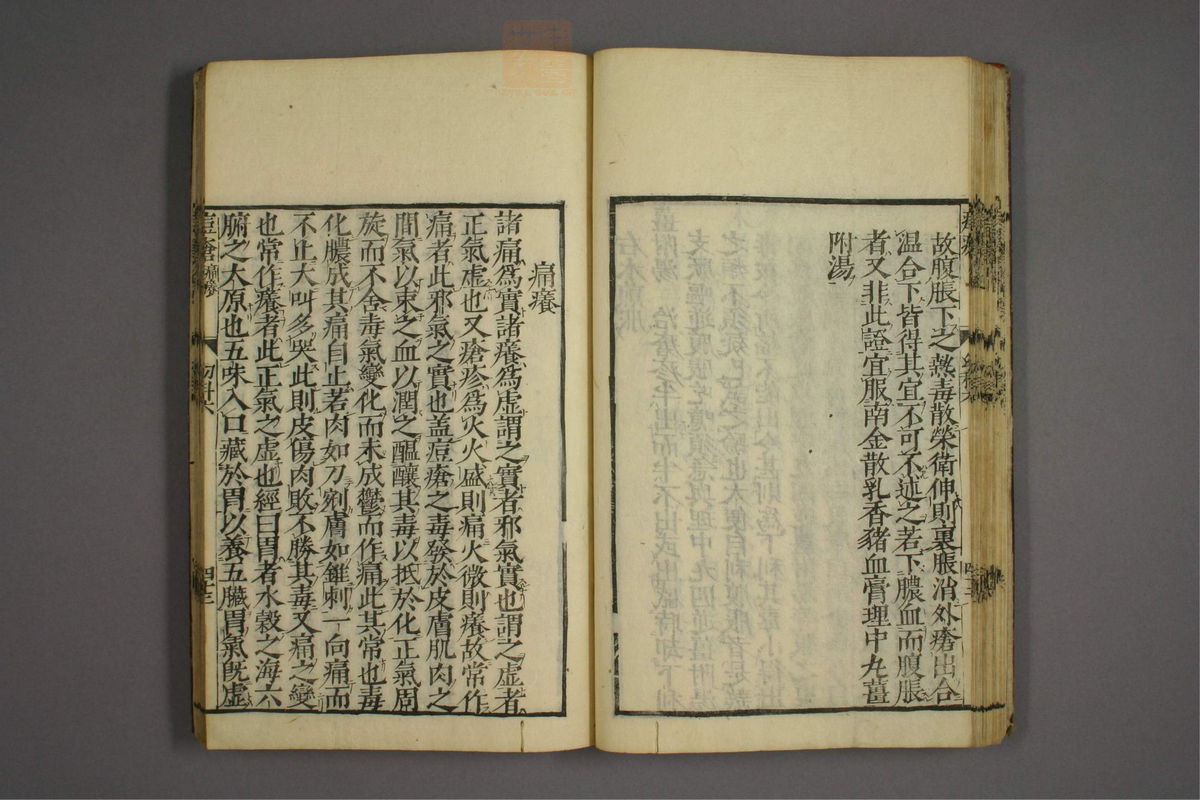 故腹脹下之熱毒散榮衛伸則裏脹消外瘡出合
温合下皆得其宜不可不述之若下膿血而腹脹
者又非此證宜服南金散乳香豬血膏理中丸薑
附湯
痛癢
諸痛爲實諸癢爲虛謂之實者邪氣實也謂之虛者
正氣虛也又瘡疹爲火火盛則痛火微則癢故常作
痛者此邪氣之實也盖痘瘡之毒發於皮膚肌肉之
間氣以束之血以潤之醞釀其毒以抵於化正氣周
旋而不舍毒氣變化而未成鬱而作痛此其常也毒
化膿成其痛自止若肉如刀剜膚如錐刺一向痛而
不止大叫多哭此則皮傷肉敗不勝其毒又痛之變
也常作癢者此正氣之虛也經曰胃者水穀之海六
腑之大原也五味入口藏於胃以養五臟胃氣旣虛
痘瘡
四十三